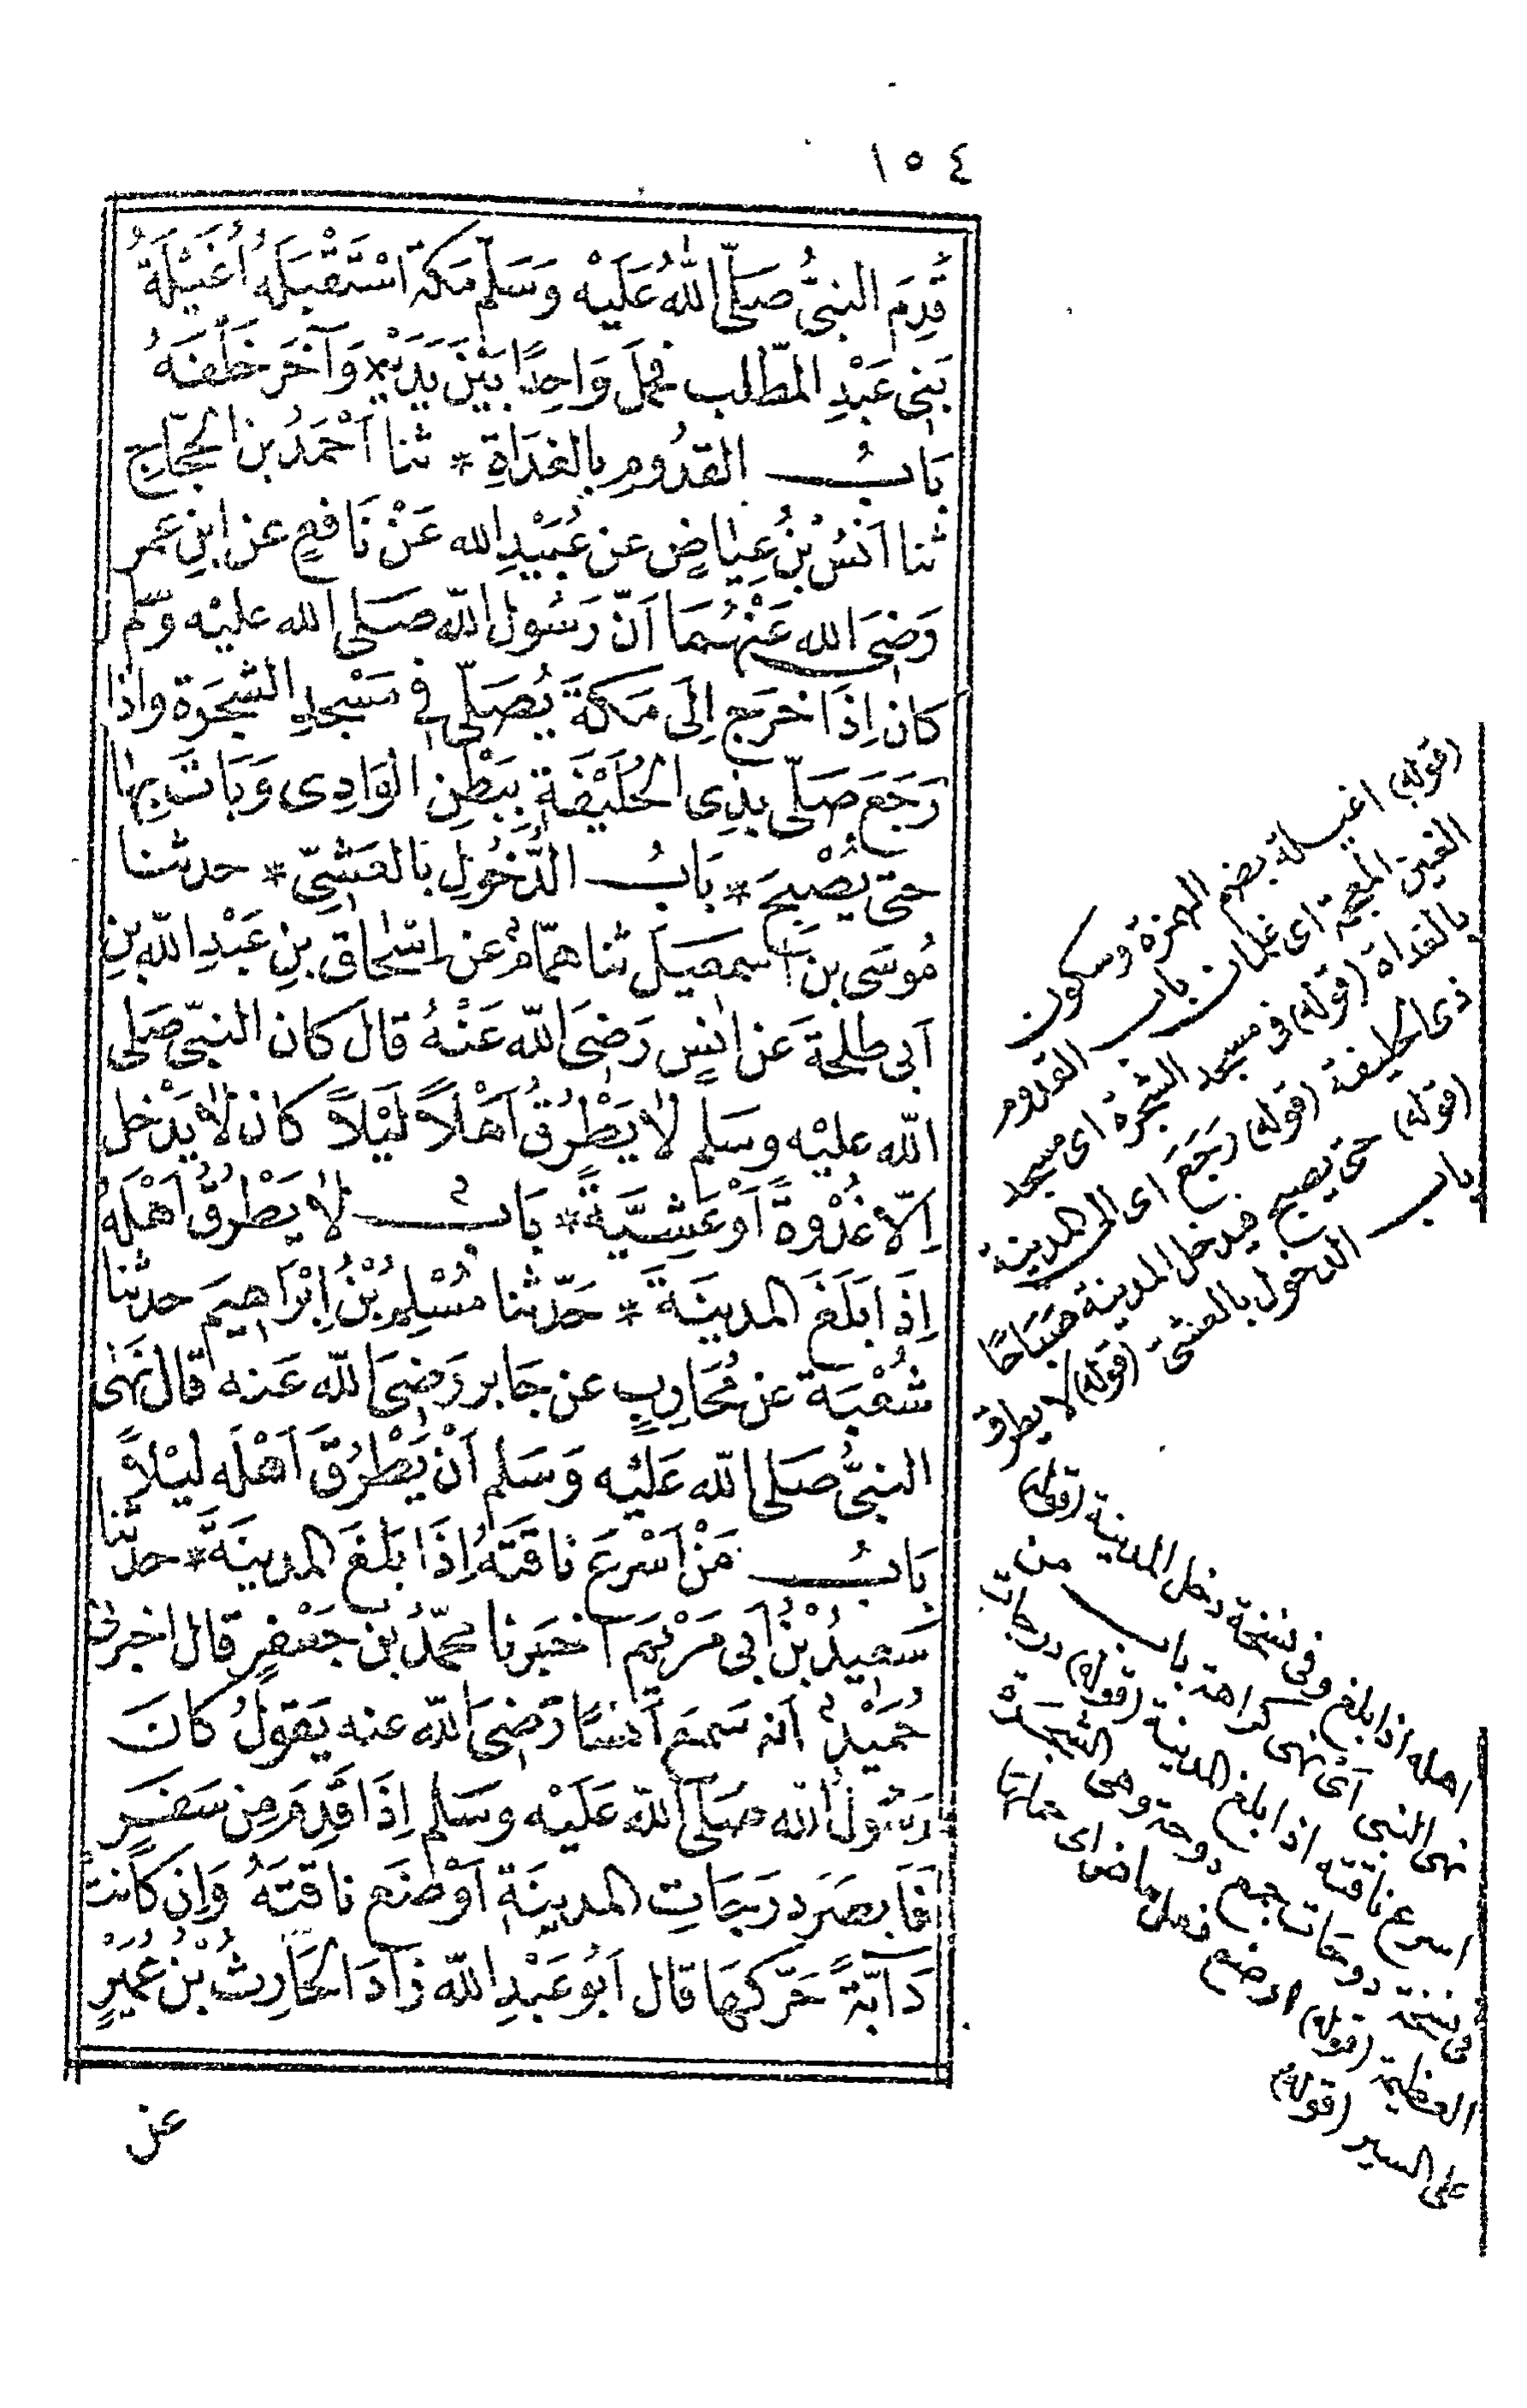 ١٥٤
قَدِمَ النبىُّ صَلَّى اللّٰهُ عَلَيْه وَسَلَّمَ مَكة اسْتَقْبَلَهُ اُغَيْلِمَةُ
بَنِى عَبْدِ المطّلب فحمل وَاحِدًا بَيْنَ يَدَيْهِ وَآخَرَ خَلْفَهُ
بَابُ القدُومِ بِالغَدَاةِ * ثنا اَحْمَدُ بن الحجّاجِ
ثنا اَنَسُ بْنُ عِيَاضٍ عن عُبَيْدِ الله عَنْ نَافعٍ عن ابنِ عمر
رَضِىَ الله عَنْهُمَا اَنّ رَسُول اللّه صَلى الله عليْه وسّلم
كان اِذَا خرَج اِلَى مَكةَ يُصَلّى فى مَسْجِدِ الشجَرَة واذا
رَجَعَ صَلّى بِذِى الحُلَيْفَةِ بِبَطْنِ الوَادِى وَبَاتَ بِهَا
حتى يُصْبِحَ * بَابُ الدُّخُولِ بَالعَشِىّ * حدثنا
مُوسَى بن اسمعيل ثنا همّامٌ عن اسْحَاق بنِ عَبْدِ اللّه بنِ
اَبى طلحة عَن انسٍ رَضِىَ اللّه عَنْهُ قالَ كان النبىّ صَلى
اللّه عليْه وسَلم لاَ يَطْرُقُ اَهْلَهُ لَيْلاً كان لاَ يَدْخل
اِلاّ غُدْوَةً اَوْ عَشِيَّةً * بَابٌ لاَ يَطْرُقُ اَهْلَهُ
اِذَا بَلَغَ المدينَةَ * حَدّثنا مُسْلِمُ بْنُ اِبْرَاهِيمَ حدثنا
شُعْبَة عن مُحَارِبٍ عن جَابر رَضِىَ اللّه عَنه قال نَهَى
النبىُّ صَلى اللّه عَليْه وَسَلم اَنْ يَطْرُقَ اَهْلَه ليْلاً
بَابُ مَنْ اَسْرَعَ ناقَتَهُ اِذَا بَلغَ المدينَةَ * حدّثنا
سَعِيدُ بْنُ اَبى مَرْيَم اَخبَرنا محمّدُ بن جَعْفرٍ قال اخبرنى
حُمَيْدٌ انه سَمعَ اَنسًا رَضِىَ اللّه عنه يَقولُ كانَ
رَسُولُ اللّه صَلى اللّه عَلَيْه وسَلم اِذَا قَدِمَ مِن سَفَرٍ
فَاَبصَر دَرَجَاتِ المدينَةِ اَوْضَع ناقَتَهُ وَاِن كَانَتْ
دَابَّةً حَرّكهَا قال اَبُو عَبْدِ اللّه زَادَ الحَارِثُ بْنُ عُمَيْرٍ
عن
(قوله) اغيلمة بضم الهمزة وسكون
الغين المعجمة اى غلمان باب القدوم
بالغداة (قوله) فى مسجد الشجرة اى مسجد
ذى الحليفة (قوله) رَجَعَ اى الى المدينة
(قوله) حتى يصبح فيدخل المدينة صَبَاحًا
باب الدخول بالعشى (قوله) لا يطرق
اهله اذا بلغ وفى نسخة دخل المدينة (قوله)
نهى النبى اى نهى كراهة باب من
اسرع ناقته اذا بلغ المدينة (قوله) درجات
فى نسخة دوحات جمع دوحة وهى الشجرة
العظيمة (قوله) اوضع فعل ماض اى حملها
على السير (قوله)